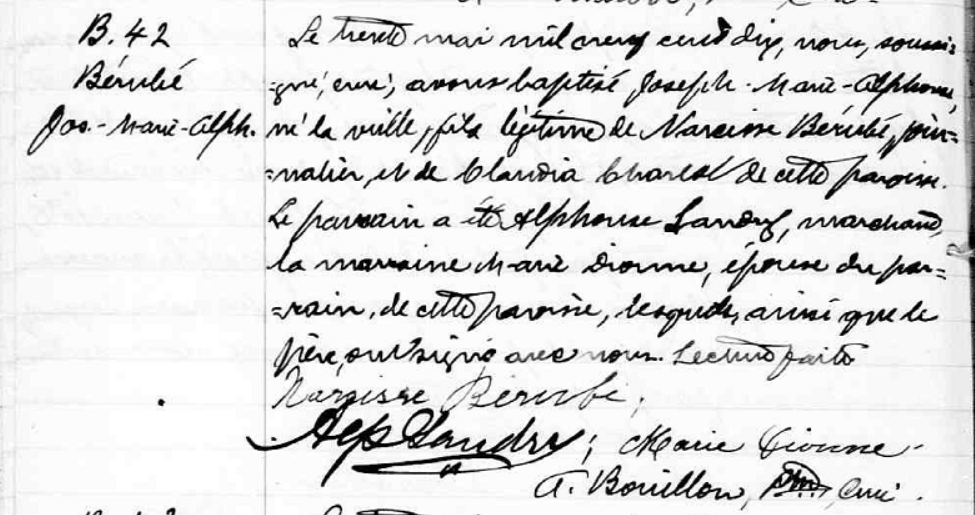 B. 42
Bérubé
Jos.-Marie-Alph.
Le trente mai mil neuf cent dix, nous, soussi=
=gné, curé, avons baptisé Joseph-Marie-Alphonse,
né la veille, fils légitime de Narcisse Bérubé, jour=
=nalier, et de Claudia Charest de cette paroisse.
Le parrain a été Alphonse Landry, marchand,
la marraine Marie Dionne, épouse du par=
=rain, de cette paroisse, lesquels, ainsi que le
père, ont signé avec nous. Lecture faite
Nargisse Bérubé,
Alp Landry; Marie Dionne
A. Bouillon, Ptre, Curé.